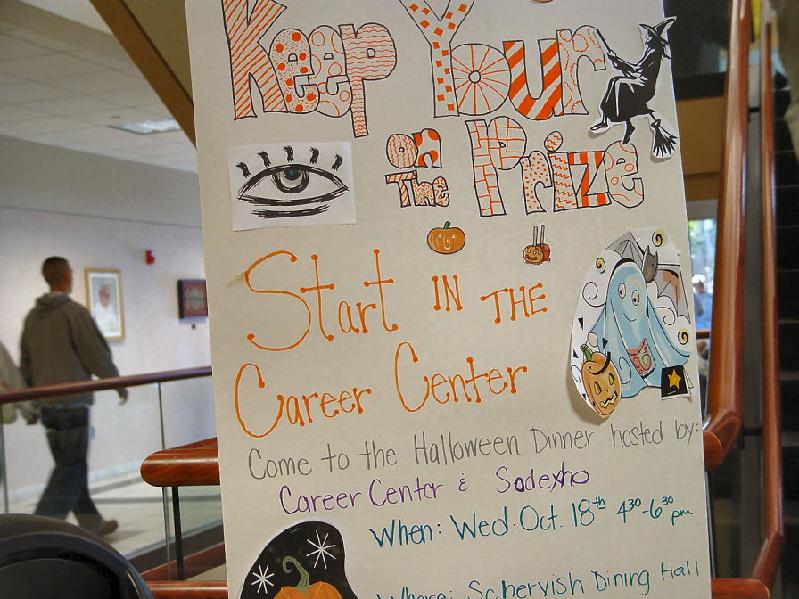 Keep Your
on
The Prize
Start IN THE
Career Center
Come to the Halloween Dinner hosted by:
Career Center & Sodexho
When: Wed. Oct. 18th 4:30-6:30 pm
Where: Schervish Dining Hall